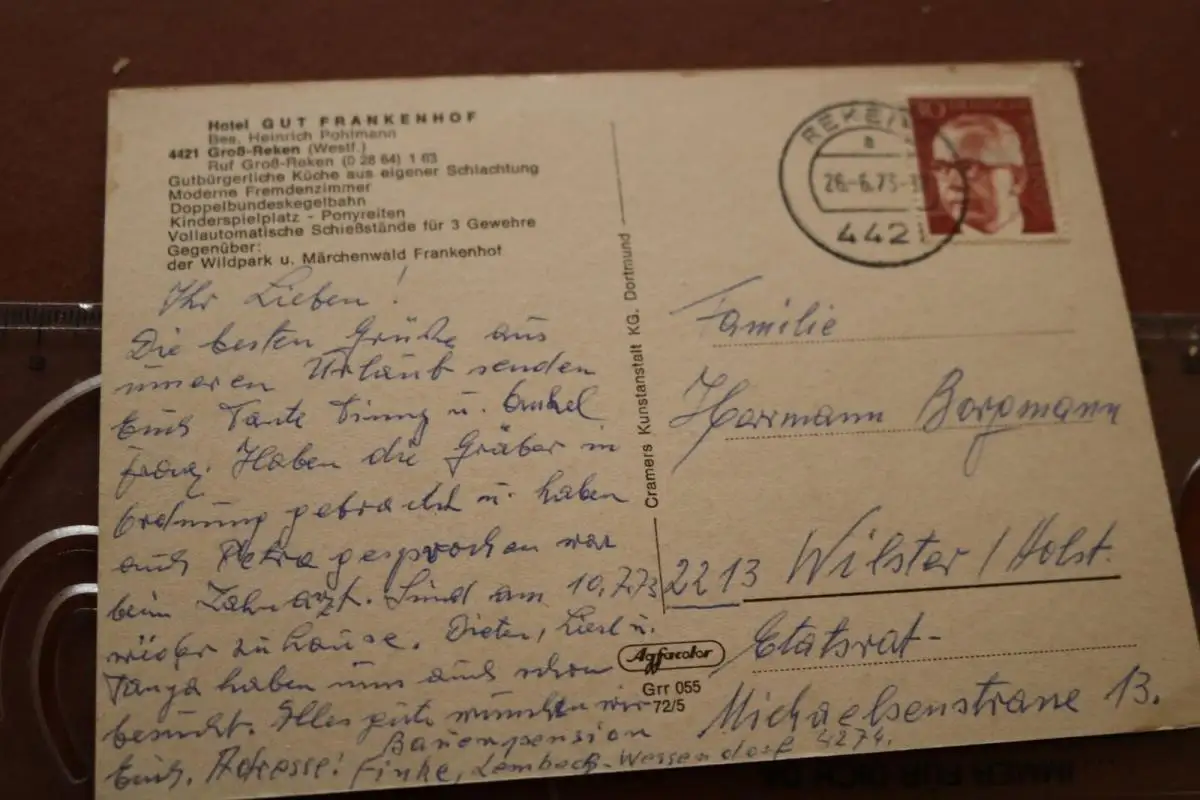 Hotel GUT FRANKENHOF
Bes. Heinrich Pohlmann
4421 Groß-Reken (Westf.)
Ruf Groß-Reken (0 28 64) 1 63
Gutbürgerliche Küche aus eigener Schlachtung
Moderne Fremdenzimmer
Doppelbundeskegelbahn
Kinderspielplatz - Ponyreiten
Vollautomatische Schießstände für 3 Gewehre
Gegenüber:
der Wildpark u. Märchenwald Frankenhof
Ihr Lieben!
Die besten Grüße aus
unseren Urlaub senden
Euch Tante Tinny u. Onkel
Franz. Haben die Gräber in
Ordnung gebracht u. haben
auch Petra gesprochen war
beim Zahnarzt. Sind am 10.7.73
wieder zu hause. Dieter, Liesl u.
Tanja haben uns auch schon
besucht. Alles gute wünschen wir
Euch. Adresse: Bauernpension
Finke, Lembeck-Wessendorf 4274.
Cramers Kunstanstalt KG. Dortmund
Agfacolor
Grr 055
72/5
REKEN
a
26.-6.73-
442
Familie
Herrmann Borgmann
2213 Wilster/Holst.
Etatsrat-
Michaelsenstrane 13.